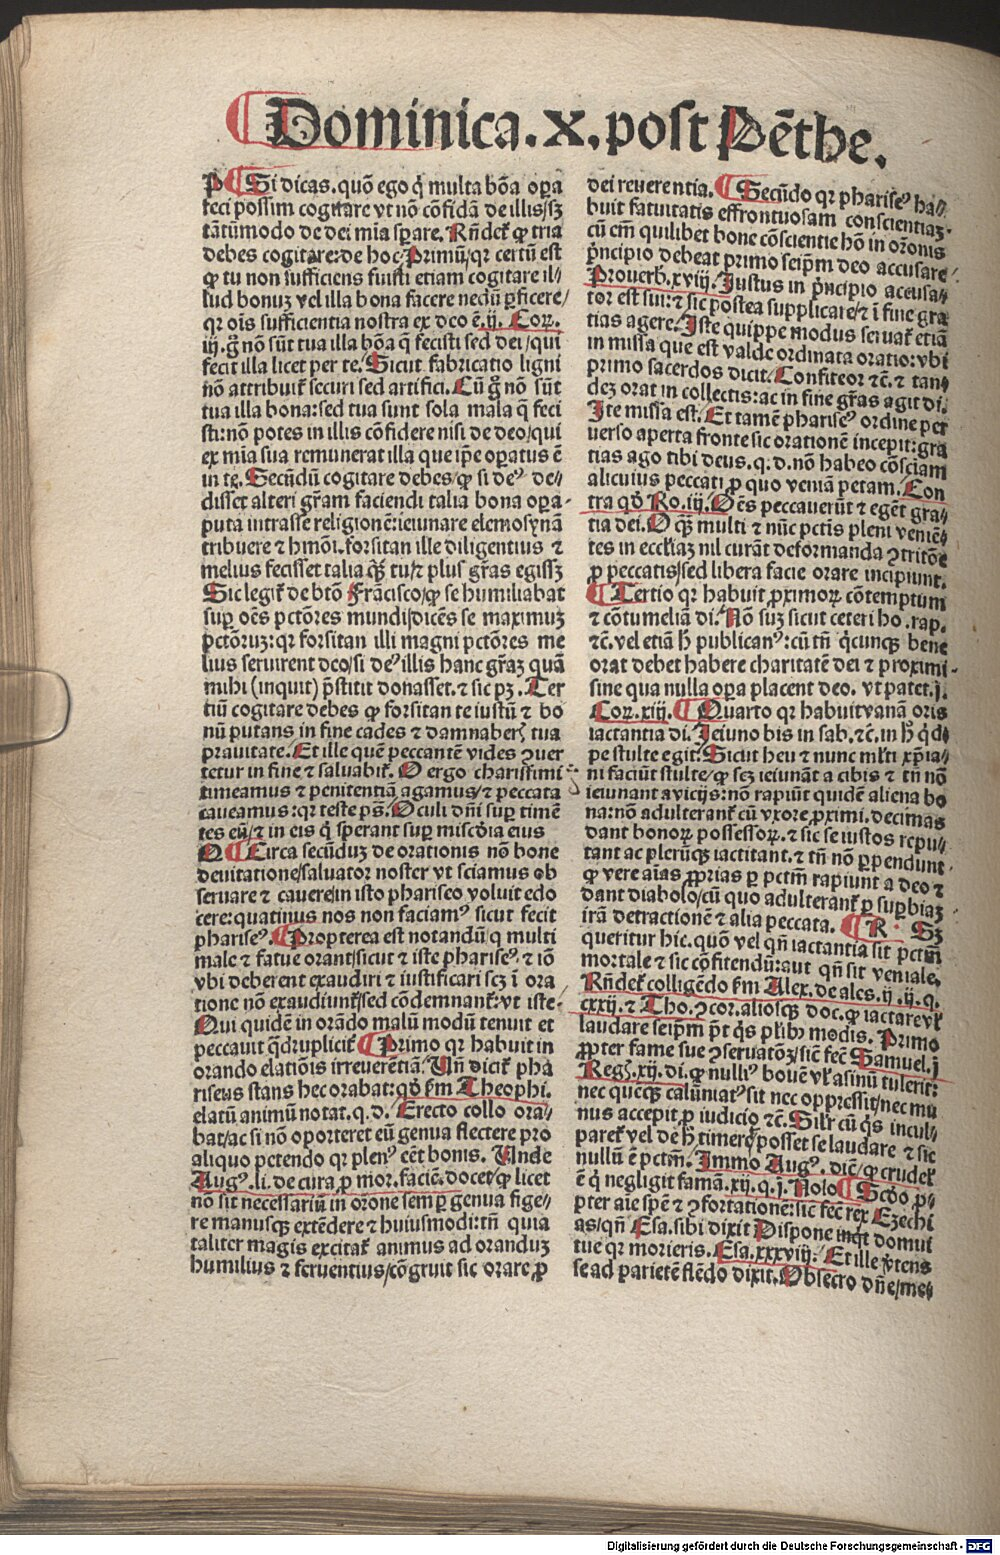 Dominica.x.post Pēthe.
P Si dicas.quō ego q̇ multa bōa oꝑa
feci possim cogitare vt nō cōfidā de illis/sꝫ
tātūmodo de dei mīa sꝑare. Rn̄det̃ ꝙ tria
debes cogitare:de hoc. Primū/qꝛ certū est
ꝙ tu non sufficiens fuisti etiam cogitare il⸗
lud bonuꝫ vel illa bona facere nedū ꝑficere/
qꝛ oīs sufficientia nostra ex deo ē.ij. Coꝝ.
iij.g̃ nō sūt tua illa bōa q̄ fecisti sed dei/qui
fecit illa licet per te. Sicut fabricatio ligni
nō attribuit̃ securi sed artifici. Cū g̃ nō sūt
tua illa bona:sed tua sunt sola mala q̄ feci
sti:nō potes in illis cōfidere nisi de deo/qui
ex mīa sua remunerat illa que ip̄e oꝑatus ē
in te. Secūdū cogitare debes/ꝙ si deꝰ de⸗
disset alteri gr̄am faciendi talia bona oꝑa.
puta intrasse religionē:ieiunare elemosynā
tribuere ⁊ hmōi.forsitan ille diligentius ⁊
melius fecisset talia q̄ꝫ tu/⁊ plus gr̄as egissꝫ
Sic legit̃ de btō Frācisco/ꝙ se humiliabat
suꝑ oēs pctōres mundi/dicēs se maximuꝫ
pctōruꝫ:qꝛ forsitan illi magni pctōres me
lius seruirent deo/si deꝰ illis hanc gr̄aꝫ quā
mihi (inquit) p̄stitit donasset.⁊ sic pꝫ. Ter
tiū cogitare debes ꝙ forsitan te iustū ⁊ bo
nū putans in fine cades ⁊ damnaberꝭ tua
prauitate. Et ille quē peccantē vides ꝯuer
tetur in fine ⁊ saluabit̃. O ergo charissimi
timeamus ⁊ penitentiā agamus/⁊ peccata
caueamus:qꝛ teste ps̄. Oculi dn̄i suꝑ timē
tes eū/⁊ in eis q̇ sperant suꝑ miscdia eius
Q Circa secūduꝫ de orationis nō bone
deuitatione/saluator noster vt sciamus ob
seruare ⁊ cauere/in isto phariseo voluit edo
cere:quatinus nos non faciamꝰ sicut fecit
phariseꝰ. Propterea est notandū q multi
male ⁊ fatue orant/sicut ⁊ iste phariseꝰ.⁊ iō
vbi deberent exaudiri ⁊ iustificari scꝫ ī ora
tione nō exaudiunt̃/sed cōdemnant̃:vt iste.
Qui quidē in orādo malū modū tenuit et
peccauit q̄druplicit̃ Primo qꝛ habuit in
orando elatiōis irreuerētiā. Vn̄ dicit̃ pha
riseus stans hec orabat:qd̓ ẜm Theophi.
elatū animū notat.q.d. Erecto collo ora⸗
bat/ac si nō oporteret eū genua flectere pro
aliquo petendo qꝛ plenꝰ eēt bonis. Vnde
Augꝰ.li.de cura ꝑ mor.faciē.docet/ꝙ licet
nō sit necessariū in orōne semꝑ genua fige⸗
re manusqꝫ extēdere ⁊ huiusmodi:tn̄ quia
taliter magis excitat̃ animus ad oranduꝫ
humilius ⁊ feruentius/cōgruit sic orare ꝓ
dei reuerentia. Secūdo qꝛ phariseꝰ ha⸗
buit fatuitatis effrontuosam conscientiaꝫ.
cū em̄ quilibet bone cōscientie hō in orōnis
p̄ncipio debeat primo seip̄m deo accusare.
Prouerb.xviij. Justus in p̄ncipio accusa⸗
tor est sui:⁊ sic postea supplicare/⁊ ī fine gra
tias agere. Iste quippe modus seruat̃ etiā
in missa que est valde ordinata oratio:vbi
primo sacerdos dicit. Confiteor ⁊c.⁊ tan⸗
deꝫ orat in collectis:ac in fine gr̄as agit di.
Ite missa est. Et tamē phariseꝰ ordine per
uerso aperta fronte sic orationē incepit:gra
tias ago tibi deus.q.d.nō habeo cōsciam
alicuius peccati ꝓ quo veniā petam. Con
tra qd̓ Ro.iij. Oēs peccauerūt ⁊ egēt gra⸗
tia dei. O q̄ꝫ multi ⁊ nūc pctis pleni veniē⸗
tes in eccliaꝫ nil curāt deformanda ꝯtritōe
ꝓ peccatis/sed libera facie orare incipiunt.
Tertio qꝛ habuit ꝓximoꝝ cōtemptum
⁊ cōtumeliā di. Nō suꝫ sicut ceteri ho.rap.
⁊c.vel etiā h̓ publicanꝰ:cū tn̄ q̇cunqꝫ bene
orat debet habere charitatē dei ⁊ proximi.
sine qua nulla oꝑa placent deo. vt patet.j.
Coꝝ.xiij. Quarto qꝛ habuit vanā oris
iactantia di. Jeiuno bis in sab.⁊c.in h̓ q̄d̓
pe stulte egit. Sicut heu ⁊ nunc ml̓ti xp̄ia⸗
ni faciūt stulte/ꝙ scꝫ ieiunāt a cibis ⁊ tn̄ nō
ieiunant a vicijs:nō rapiūt quidē aliena bo
na:nō adulterant̃ cū vxore ꝓximi.decimas
dant honoꝝ possessoꝝ.⁊ sic se iustos repu⸗
tant ac pleruqꝫ iactitant.⁊ tn̄ nō ꝑpendunt.
ꝙ vere aīas ꝓprias ꝑ pctm̄ rapiunt a deo ⁊
dant diabolo/cū quo adulterant̃ ꝑ suꝑbiaꝫ
irā detractionē ⁊ alia peccata. R. Sꝫ
queritur hic.quō vel qn̄ iactantia sit pctm̄
mortale ⁊ sic cōfitendū:aut qn̄ sit veniale.
Rn̄det̃ colligēdo ẜm Alex.de ales.ij.ij.q.
cxxij.⁊ Tho.ꝯcor.aliosqꝫ doc.ꝙ iactare vl̓
laudare seip̄m p̄t q̇s plib̓ modis. Primo
ꝓpter fame sue ꝯseruatōꝫ/sic̄ fec̄ Samuel.j
Regꝭ.xij.di.ꝙ nulliꝰ bouē vl̓ asinū tulerit:
nec queqꝫ calūniatꝰ sit nec oppressit/nec mu
nus accepit ꝓ iudicio ⁊c. Sil̓r cū q̇s incul⸗
paret̃ vel de h̓ timeret̃ posset se laudare ⁊ sic
nullū ē pctm̄. Immo Augꝰ. dic̄/ꝙ crudel̓
ē q̇ negligit famā.xij.q.j. Nolo Scd̓o ꝓ⸗
pter aīe spē ⁊ ꝯfortationē:sic fec̄ rex Ezechi
as/qn̄ Esa.sibi dixit Dispone inqt domui
tue qꝛ morieris. Esa.xxxviij. Et ille v̓tens
se ad parietē flēdo dixit. Obsecro dn̄e/me⸗
Digitalisierung gefördert durch die Deutsche Forschungsgemeinschaft - DFG